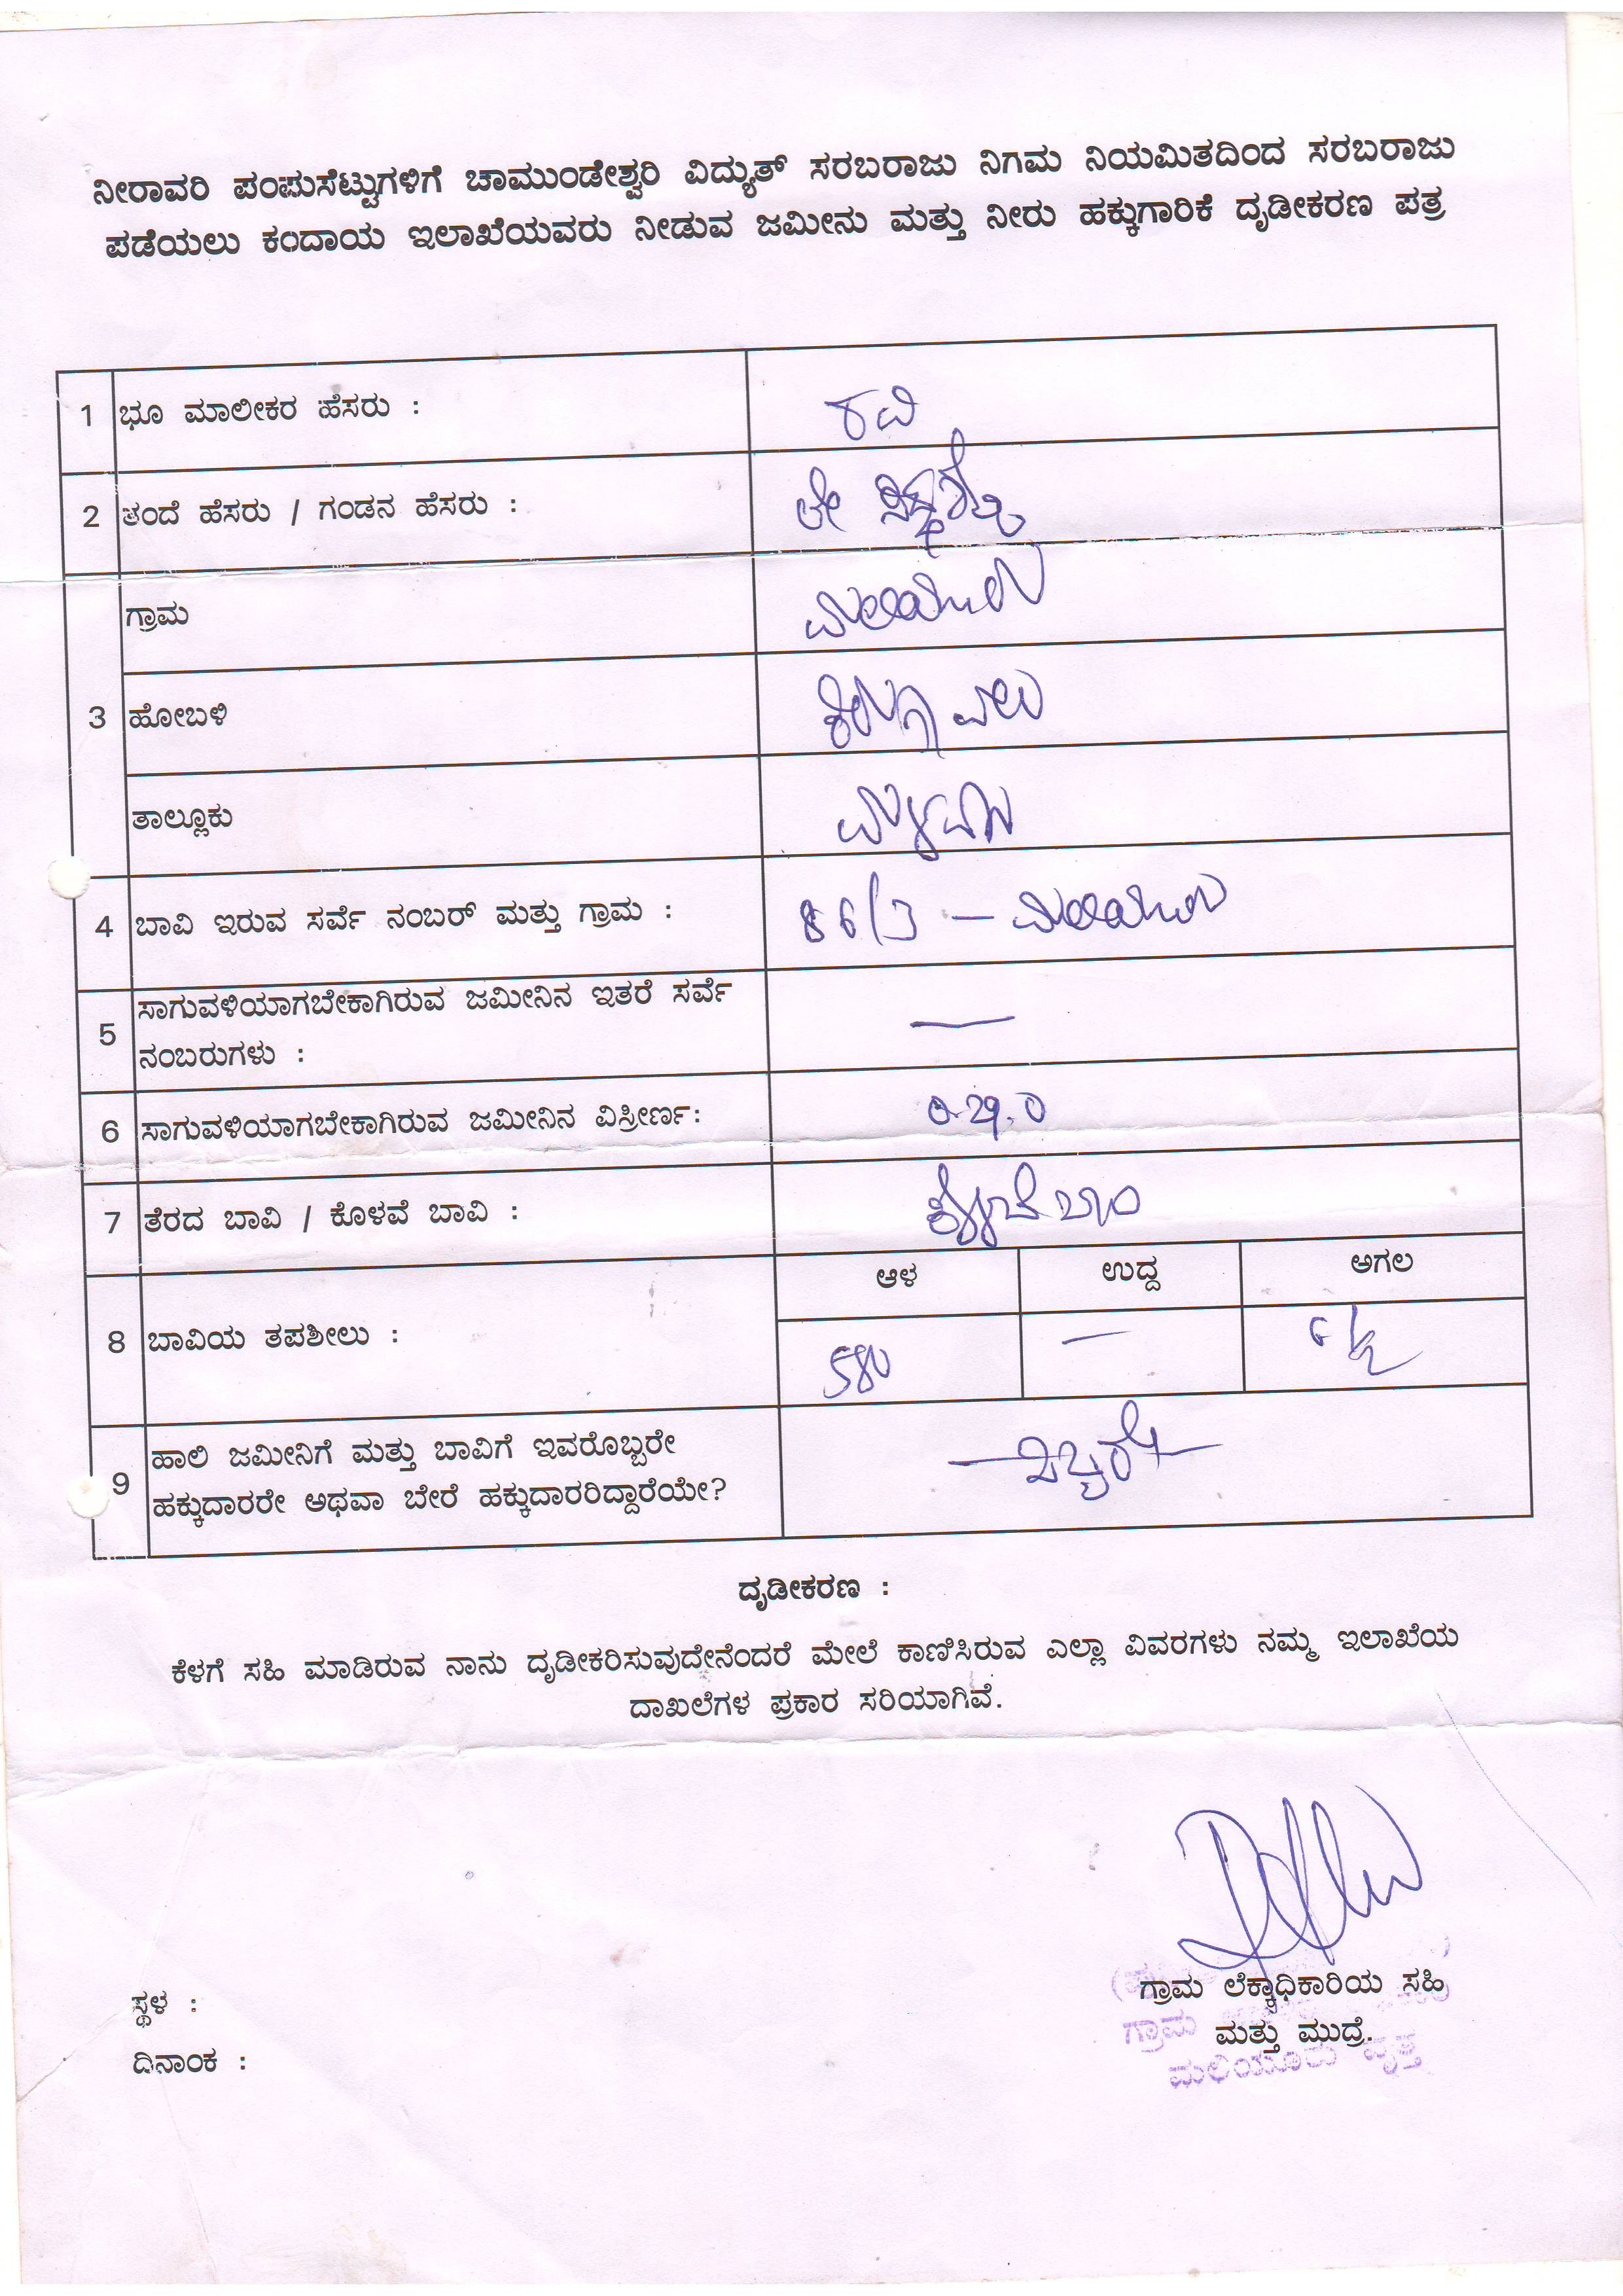 ನೀರಾವರಿ ಪಂಪುಸೆಟ್ಟುಗಳಿಗೆ ಚಾಮುಂಡೇಶ್ವರಿ ವಿದ್ಯುತ್ ಸರಬರಾಜು ನಿಗಮ ನಿಯಮಿತದಿಂದ ಸರಬರಾಜು
ಪಡೆಯಲು ಕಂದಾಯ ಇಲಾಖೆಯವರು ನೀಡುವ ಜಮೀನು ಮತ್ತು ನೀರು ಹಕ್ಕುಗಾರಿಕೆ ದೃಡೀಕರಣ ಪತ್ರ
1 ಭೂ ಮಾಲೀಕರ ಹೆಸರು : ರವಿ
2 ತಂದೆ ಹೆಸರು / ಗಂಡನ ಹೆಸರು : ಲೇ
ಗ್ರಾಮ ಮಲಿಯೂರು
3 ಹೋಬಳಿ
ತಾಲ್ಲೂಕು
4 ಬಾವಿ ಇರುವ ಸರ್ವೆ ನಂಬರ್ ಮತ್ತು ಗ್ರಾಮ : 86/3 — ಮಲಿಯೂರು
5 ಸಾಗುವಳಿಯಾಗಬೇಕಾಗಿರುವ ಜಮೀನಿನ ಇತರೆ ಸರ್ವೆ
ನಂಬರುಗಳು : —
6 ಸಾಗುವಳಿಯಾಗಬೇಕಾಗಿರುವ ಜಮೀನಿನ ವಿಸ್ರೀರ್ಣ: 0-29.0
7 ತೆರದ ಬಾವಿ / ಕೊಳವೆ ಬಾವಿ : ಕೊಳವೆ ಬಾವಿ
ಆಳ ಉದ್ದ ಅಗಲ
8 ಬಾವಿಯ ತಪಶೀಲು : 580 — 6½
9 ಹಾಲಿ ಜಮೀನಿಗೆ ಮತ್ತು ಬಾವಿಗೆ ಇವರೊಬ್ಬರೇ
ಹಕ್ಕುದಾರರೇ ಅಥವಾ ಬೇರೆ ಹಕ್ಕುದಾರರಿದ್ದಾರೆಯೇ?
ದೃಡೀಕರಣ :
ಕೆಳಗೆ ಸಹಿ ಮಾಡಿರುವ ನಾನು ದೃಡೀಕರಿಸುವುದೇನೆಂದರೆ ಮೇಲೆ ಕಾಣಿಸಿರುವ ಎಲ್ಲಾ ವಿವರಗಳು ನಮ್ಮ ಇಲಾಖೆಯ
ದಾಖಲೆಗಳ ಪ್ರಕಾರ ಸರಿಯಾಗಿವೆ.
ಸ್ಥಳ :
ದಿನಾಂಕ :
ಗ್ರಾಮ ಲೆಕ್ಕಾಧಿಕಾರಿಯ ಸಹಿ
ಮತ್ತು ಮುದ್ರೆ.
ಗ್ರಾಮ
ಮಲಿಯೂರು ವೃತ್ತ